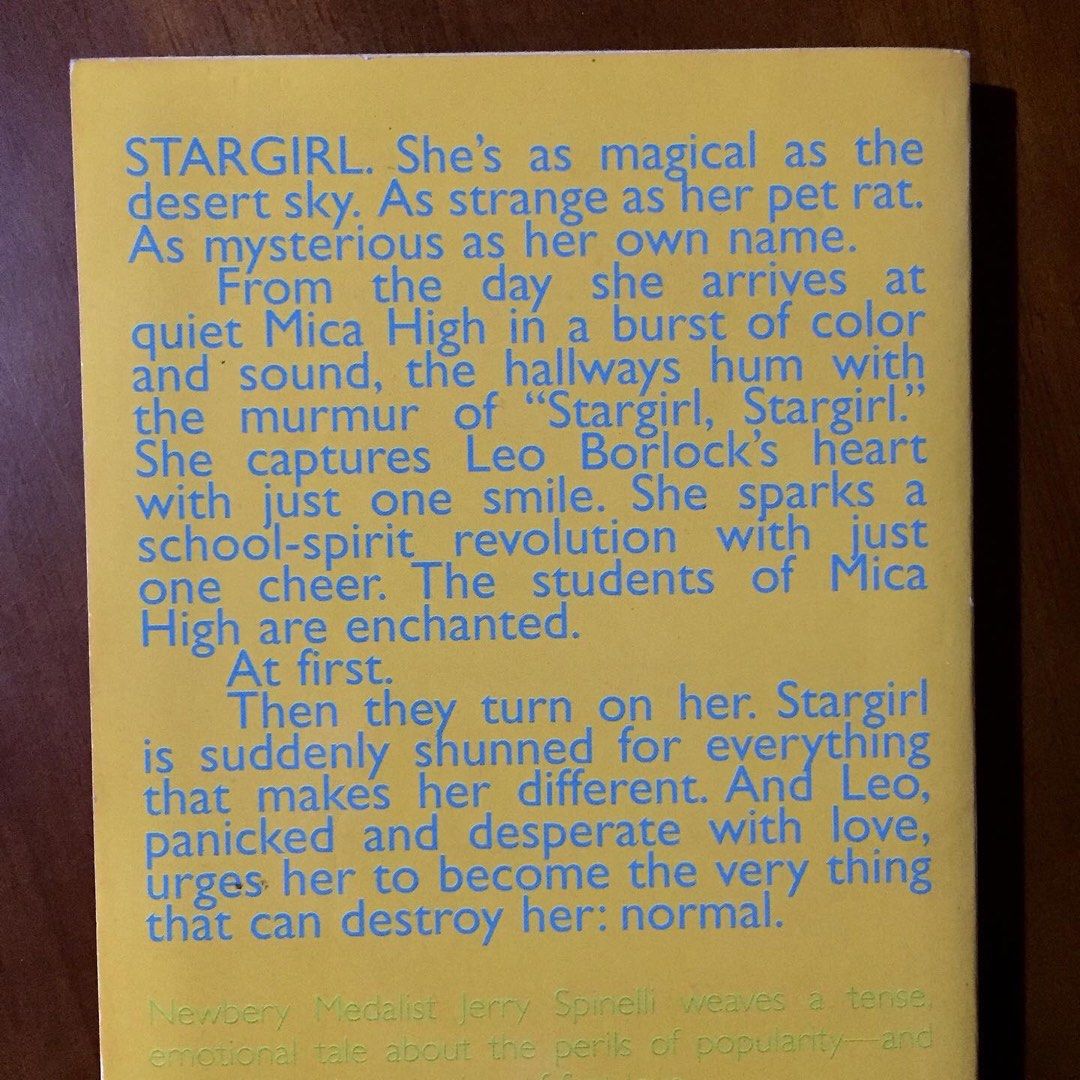 STARGIRL. She's as magical as the
desert sky. As strange as her pet rat.
As mysterious as her own name.
From the day she arrives at
quiet Mica High in a burst of color
and sound, the hallways hum with
the murmur of “Stargirl, Stargirl.”
She captures Leo Borlock's heart
with just one smile. She sparks a
school-spirit revolution with just
one cheer. The students of Mica
High are enchanted.
At first.
Then they turn on her. Stargirl
is suddenly shunned for everything
that makes her different. And Leo,
panicked and desperate with love,
urges her to become the very thing
that can destroy her: normal.
Newbery Medalist Jerry Spinelli weaves a tense,
emotional tale about the perils of popularity—and